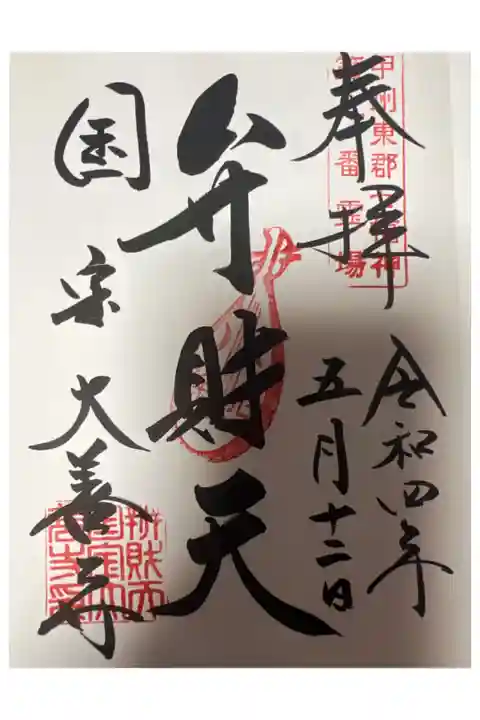 奉拝
令和四年
五月十二日
弁財天
国宝 大善寺
甲州東郡
番霊場
辨財天